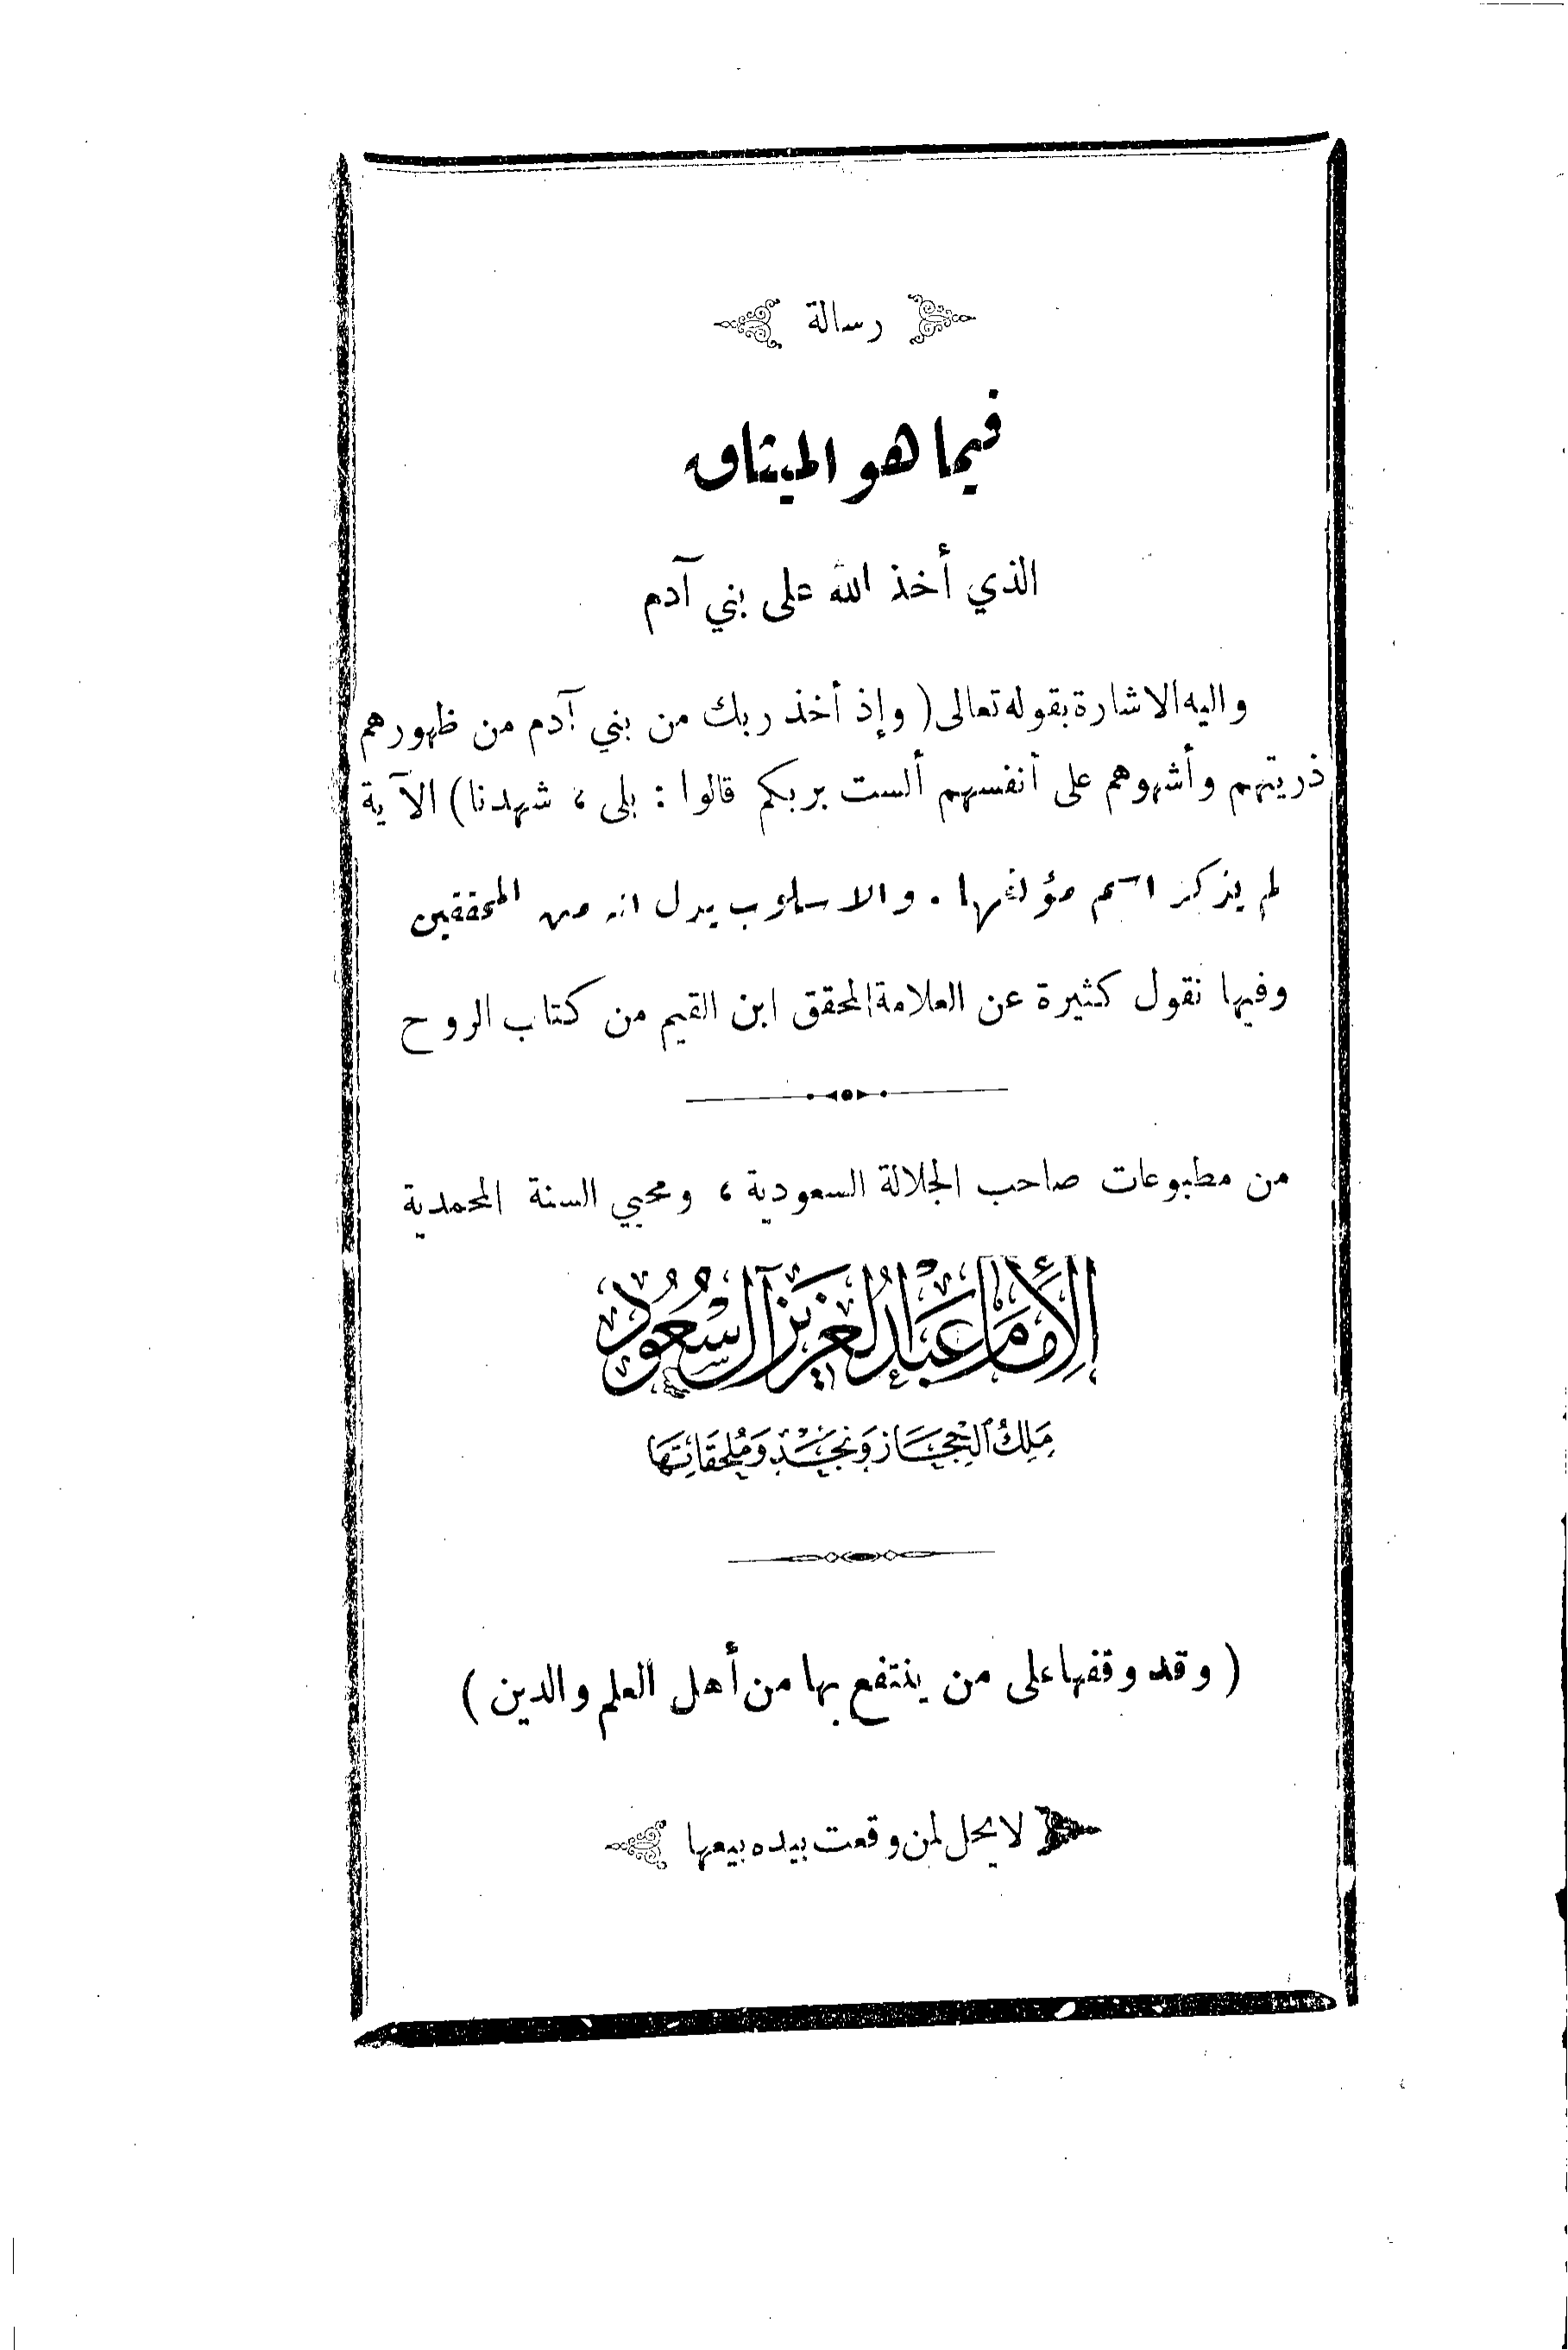 رسالة
فيما هو الميثاق
الذي أخذ الله على بني آدم
واليه الاشارة بقوله تعالى ( وإذ أخذ ربك من بني آدم من ظهورهم
ذريتهم وأشهوهم على أنفسهم ألست بربكم قالوا : بلى ، شهدنا ) الآية
لم يذكر اسم مؤلفها . والاسلوب يدل انه من المحققين
وفيها نقول كثيرة عن العلامة المحقق ابن القيم من كتاب الروح
من مطبوعات صاحب الجلالة السعودية ، ومحيي السنة المحمدية
الإمام عبد العزيز آل سعود
مَلِكُ الحِجَاز وَنَجْد وَمُلْحَقَاتِهَا
( وقد وقفها على من ينتفع بها من أهل العلم والدين )
لا يحل لمن وقعت بيده بيعها